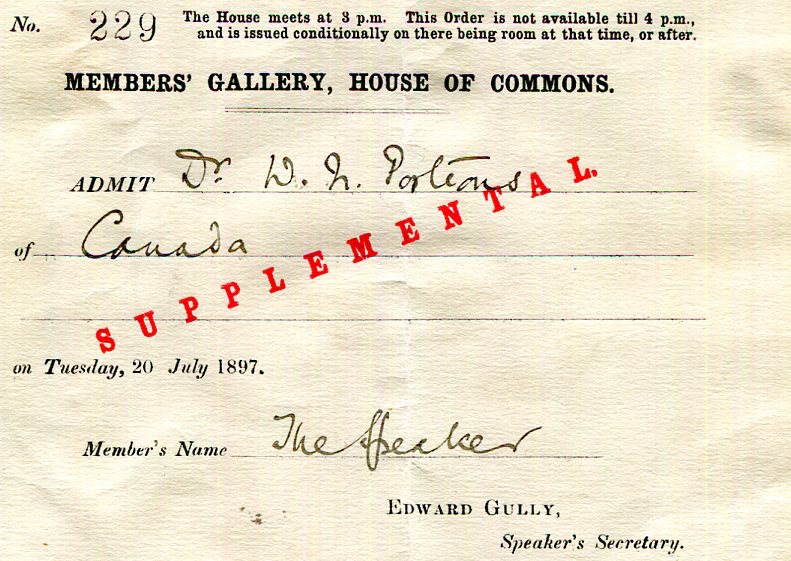 No. 229 The House meets at 3 p.m. This Order is not available till 4 p.m.,
and is issued conditionally on there being room at that time, or after.
MEMBERS' GALLERY, HOUSE OF COMMONS.
ADMIT Dr. W. N. Porteous
of Canada
SUPPLEMENTAL.
on Tuesday, 20 July 1897.
Member's Name The Speaker
EDWARD GULLY,
Speaker's Secretary.